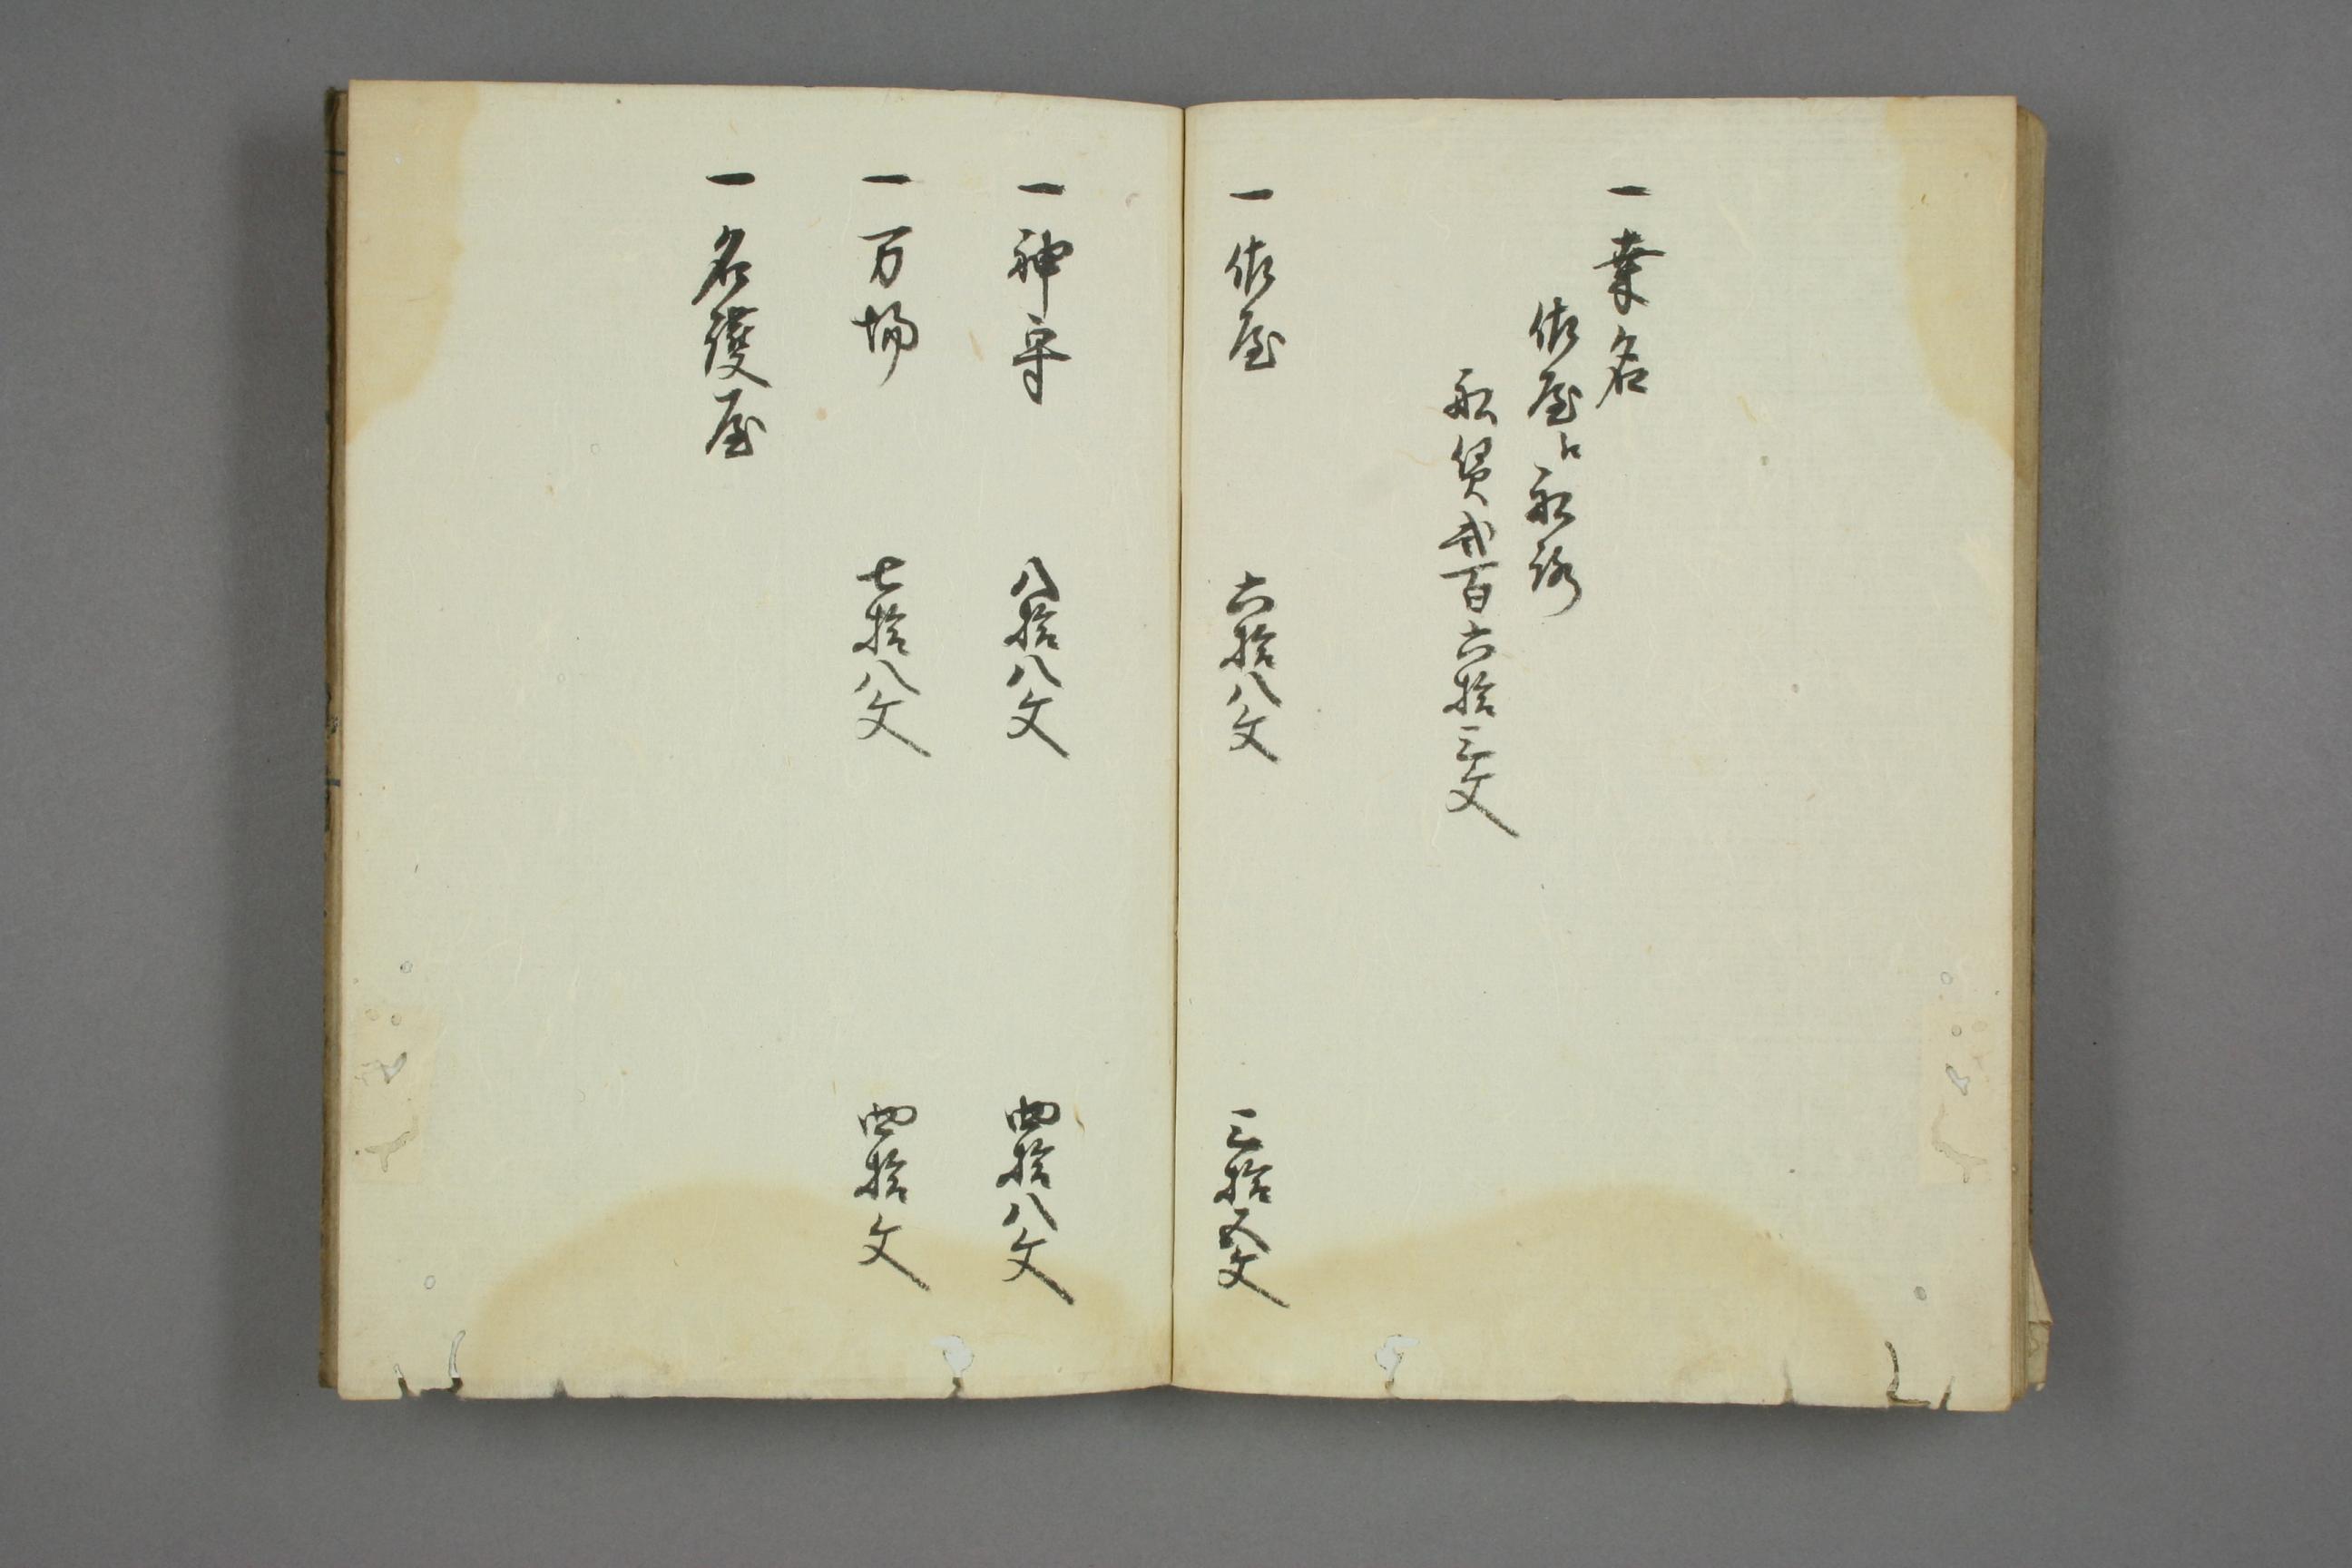 一 桒名
佐屋ゟ船路
船賃弐百六拾三文
一 佐屋 六拾八文 三拾五文
一 神守 八拾八文 四拾八文
一 万場 七拾八文 四拾文
一 名護屋